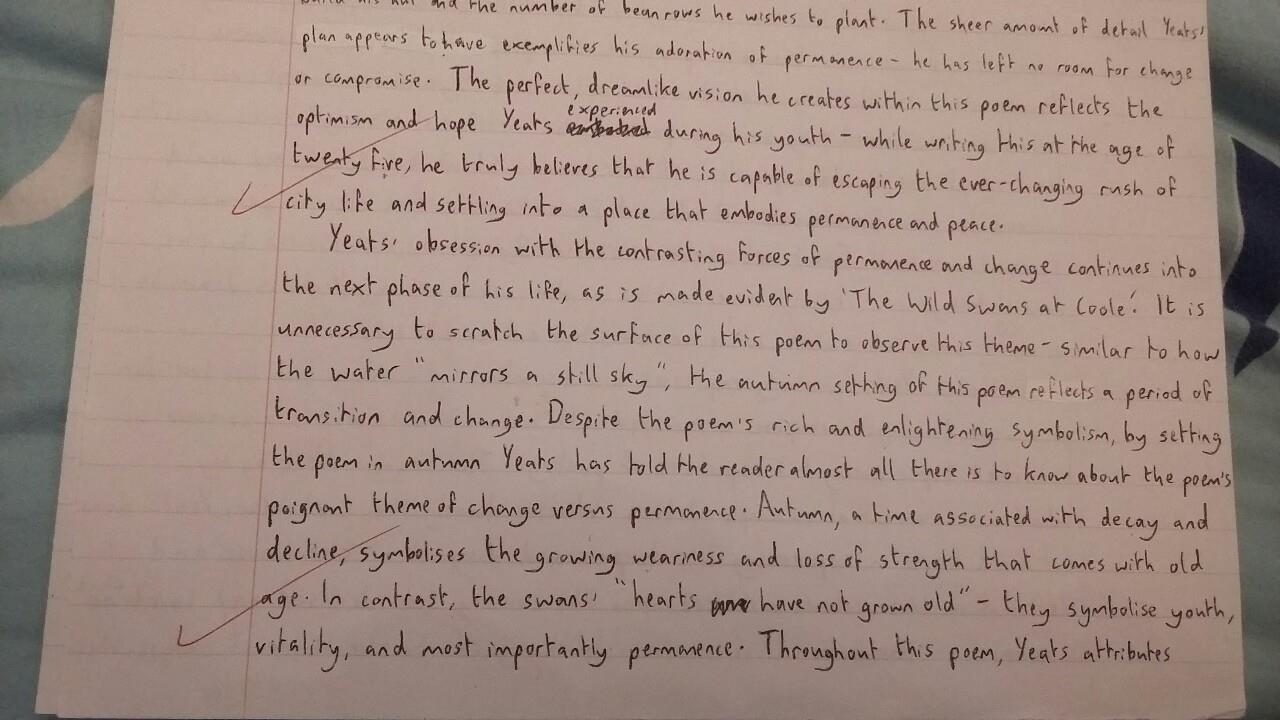 build his hut and the number of bean rows he wishes to plant. The sheer amount of detail Yeats'
plan appears to have exemplifies his adoration of permanence - he has left no room for change
or compromise. The perfect, dreamlike vision he creates within this poem reflects the
experienced
optimism and hope Yeats during his youth - while writing this at the age of
twenty five, he truly believes that he is capable of escaping the ever-changing rush of
city life and settling into a place that embodies permanence and peace.
Yeats' obsession with the contrasting forces of permanence and change continues into
the next phase of his life, as is made evident by 'The Wild Swans at Coole'. It is
unnecessary to scratch the surface of this poem to observe this theme - similar to how
the water "mirrors a still sky", the autumn setting of this poem reflects a period of
transition and change. Despite the poem's rich and enlightening symbolism, by setting
the poem in autumn Yeats has told the reader almost all there is to know about the poem's
poignant theme of change versus permanence. Autumn, a time associated with decay and
decline, symbolises the growing weariness and loss of strength that comes with old
age. In contrast, the swans' "hearts have not grown old" - they symbolise youth,
vitality, and most importantly permanence. Throughout this poem, Yeats attributes